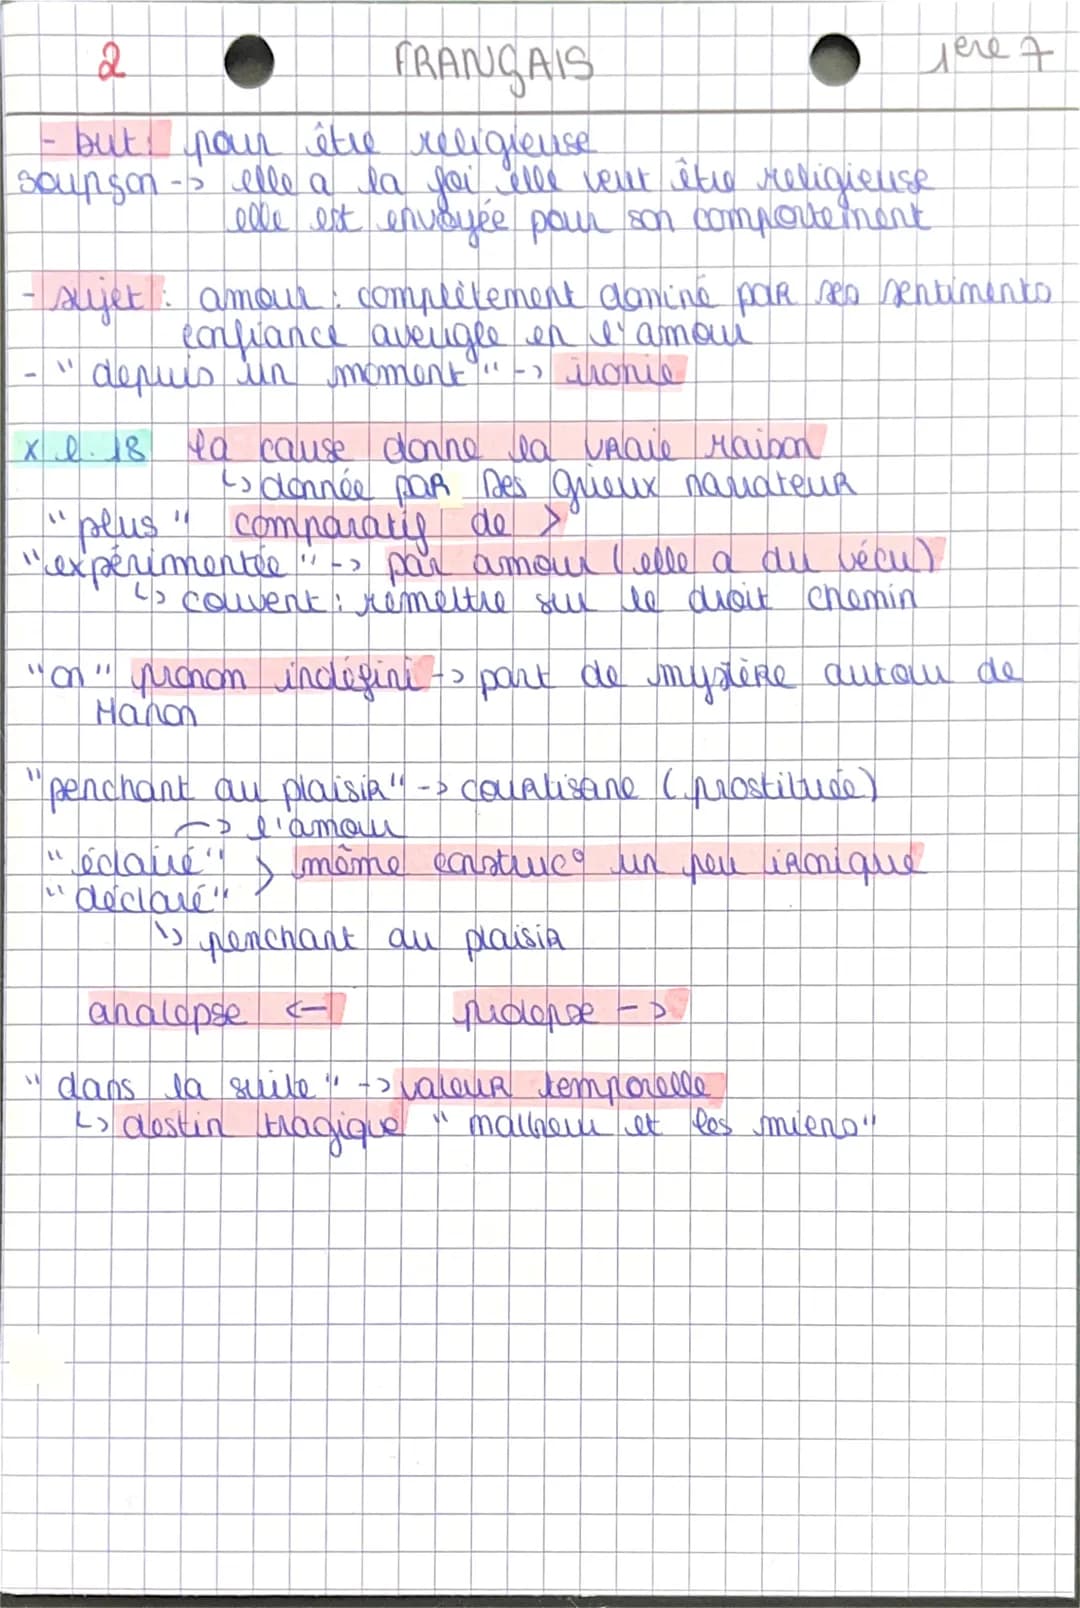 2 FRANÇAIS 1ere 7
- but: pour être religieuse
soupçon -> elle a la foi elle veut être religieuse
elle est envoyée pour son comportement
- sujet : amour : complètement dominé par ses sentiments
confiance aveugle en l'amour
- "depuis un moment" -> ironie
x l. 18 la cause donne la vraie raison
↳ donnée par Des Grieux narrateur
"plus" comparatif de >
"expérimentée" -> par amour (elle a du vécu)
↳ couvent : remettre sur le droit chemin
"on" pronom indéfini -> part de mystère autour de
Manon
"penchant au plaisir" -> courtisane (prostituée)
-> l'amour
"éclairé" > même construc° un peu ironique
"déclaré"
↳ penchant au plaisir
analepse <- prolepse ->
"dans la suite" -> valeur temporelle
↳ destin tragique "malheur et les miens"